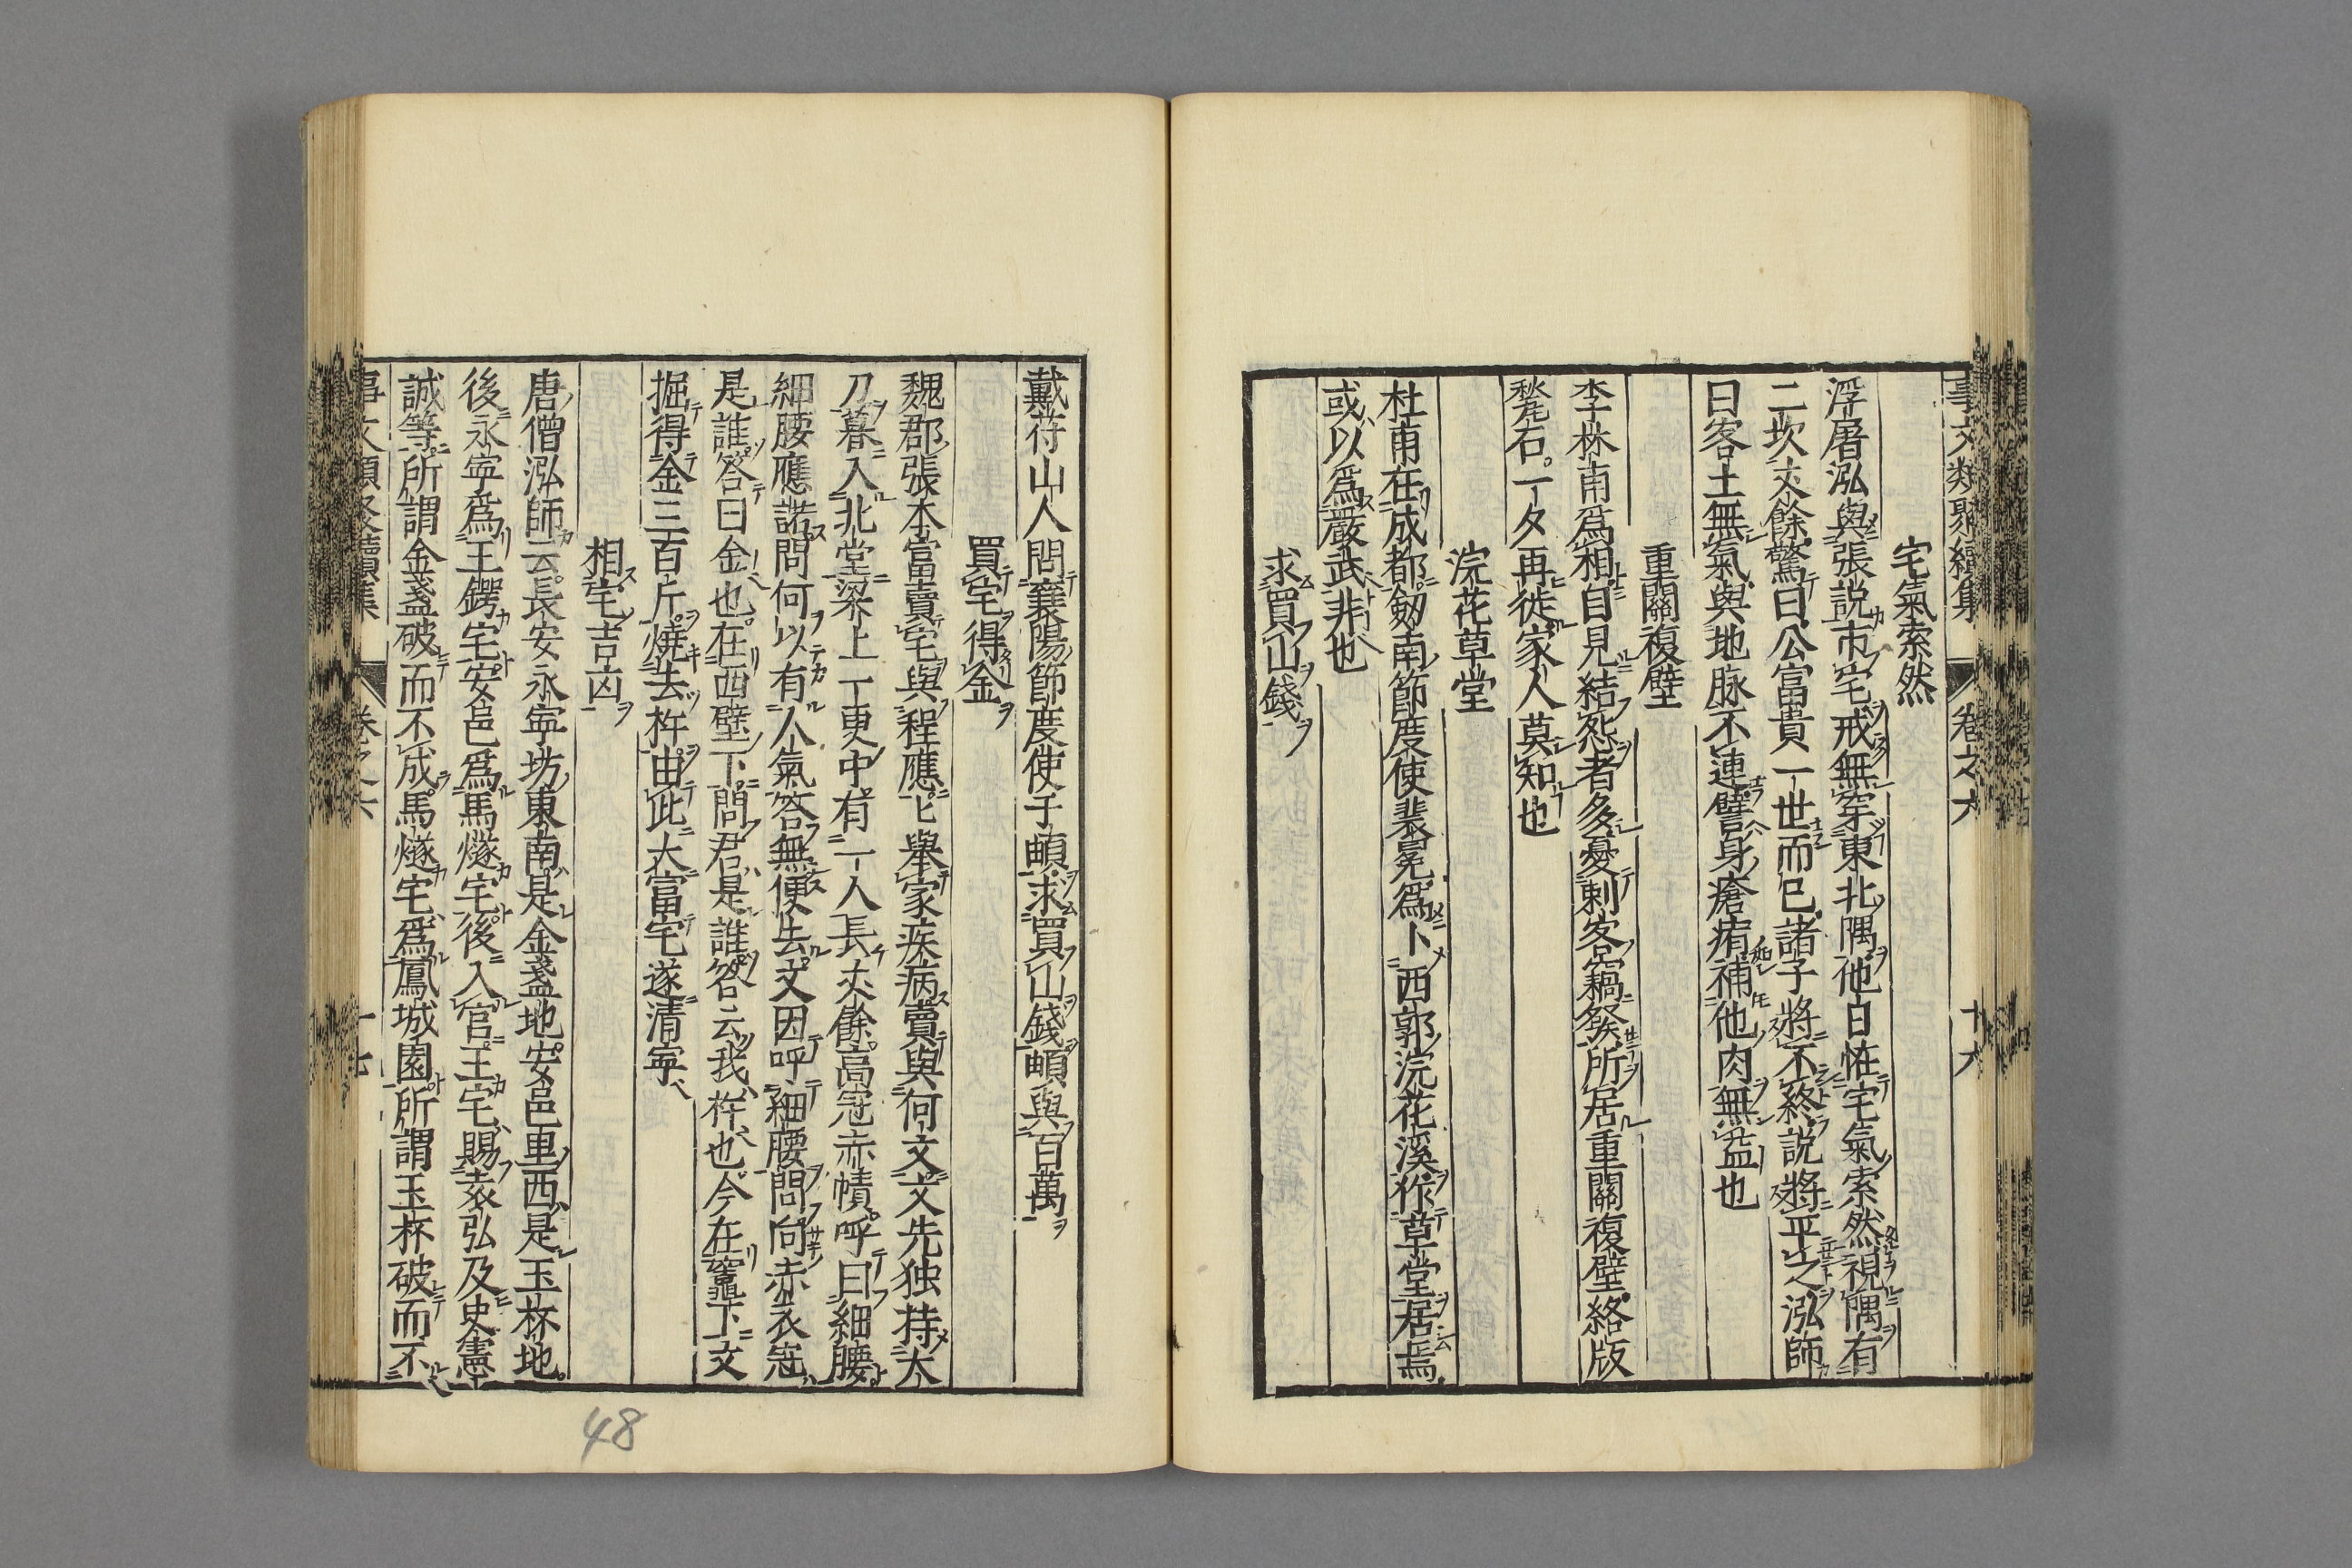 事文類聚續集 卷之六 十六
宅氣索然
浮屠泓與張説市宅戒無穿東北隅他日恠宅氣索然視隅有
二坎丈餘驚曰公富貴一世而已諸子將不終説將平之泓師
曰客土無氣與地脉不連譬身瘡痏補他肉無益也
重關複壁
李林甫爲相自見結怨者多憂刺客竊發所居重關複壁絡版
甃石一夕再徙家人莫知也
浣花草堂
杜甫在成都劔南節度使裴冕爲卜西郭浣花溪作草堂居焉
或以爲嚴武非也
求買山錢
戴符山人問襄陽節度使于頔求買山錢頔與百萬
買宅得金
魏郡張本富賣宅與程應七舉家疾病賣與何文文先独持大
刀暮入北堂梁上一更中有一人長丈餘高冠赤幘呼曰細腰
細腰應諾問何以有人氣答無便去文因呼細腰問向赤衣冠
是誰答曰金也在西壁下問君是誰答云我杵也今在竈下文
掘得金三百斤燒去杵由此大富宅遂清寧
相宅吉凶
唐僧泓師云長安永寧坊東南是金盞地安邑里西是玉杯地
後永寧爲王鍔宅安邑爲馬燧宅後入官王宅賜袁弘及史憲
誠等所謂金盞破而不成馬燧宅爲鳳城園所謂玉杯破而不
事文類聚續集 卷之六 十七
48